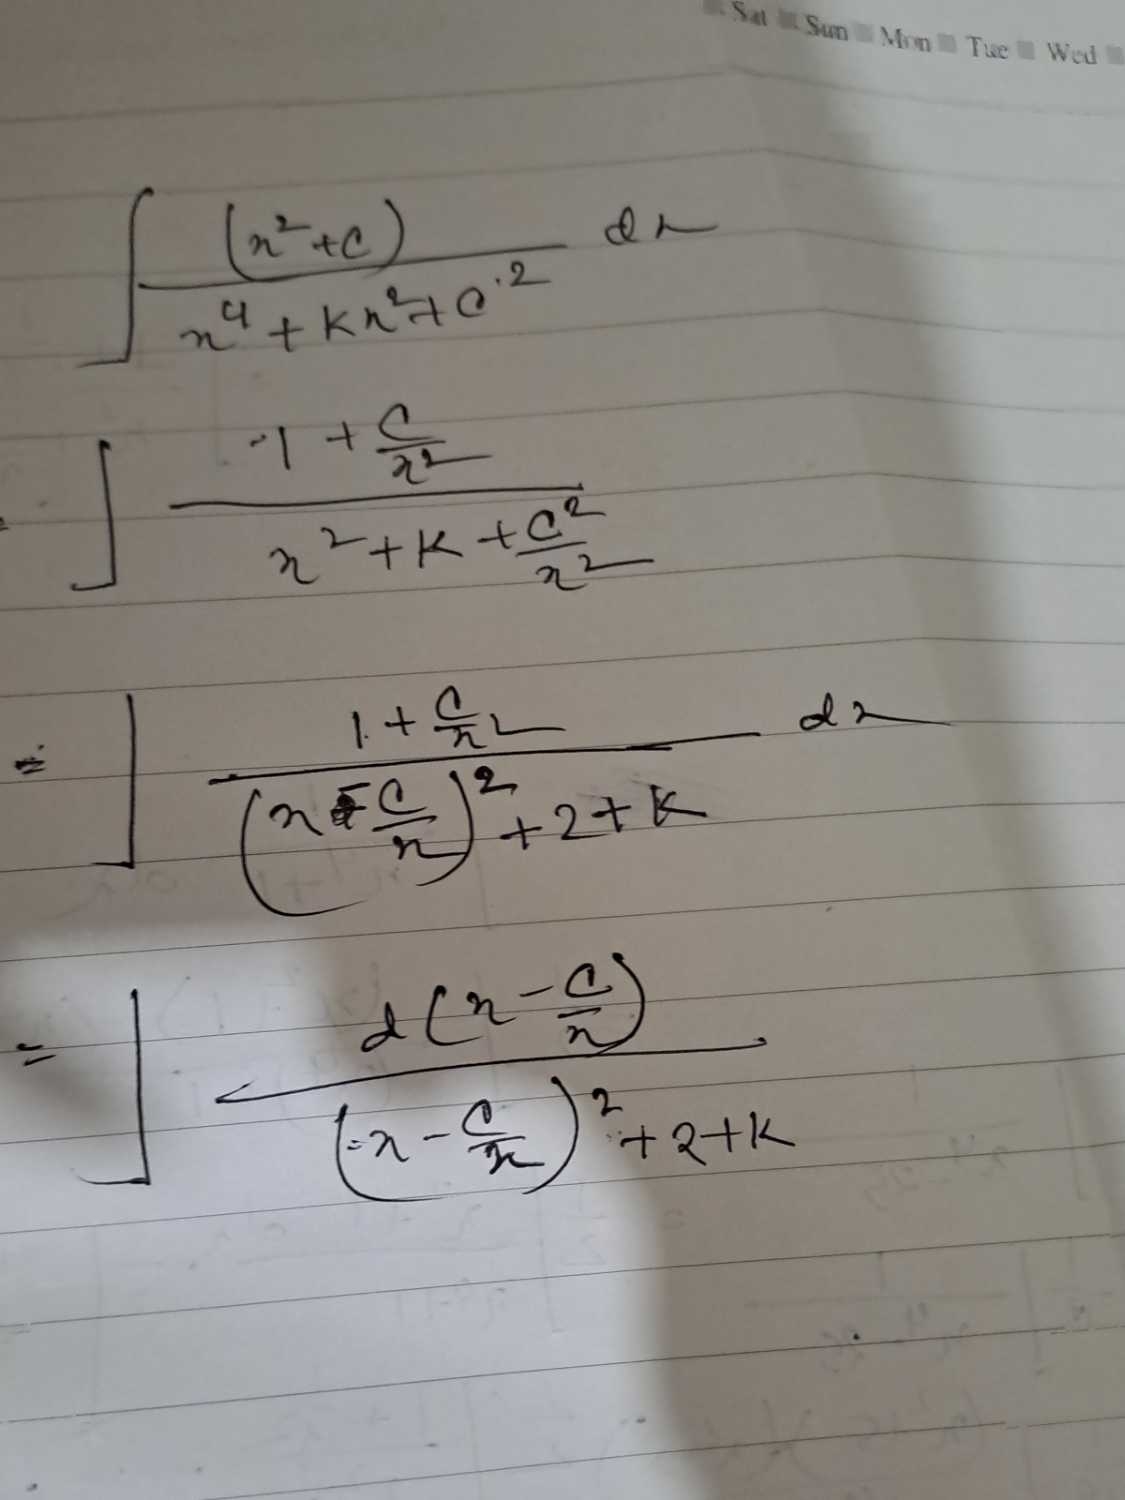 Sat Sun Mon Tue Wed
∫ (x²+c) / (x⁴ + Kx² + c²) dx
= ∫ (1 + c/x²) / (x² + K + c²/x²)
= ∫ (1 + c/x²) / ((x - c/x)² + 2 + K) dx
= ∫ d(x - c/x) / ((x - c/x)² + 2 + K)